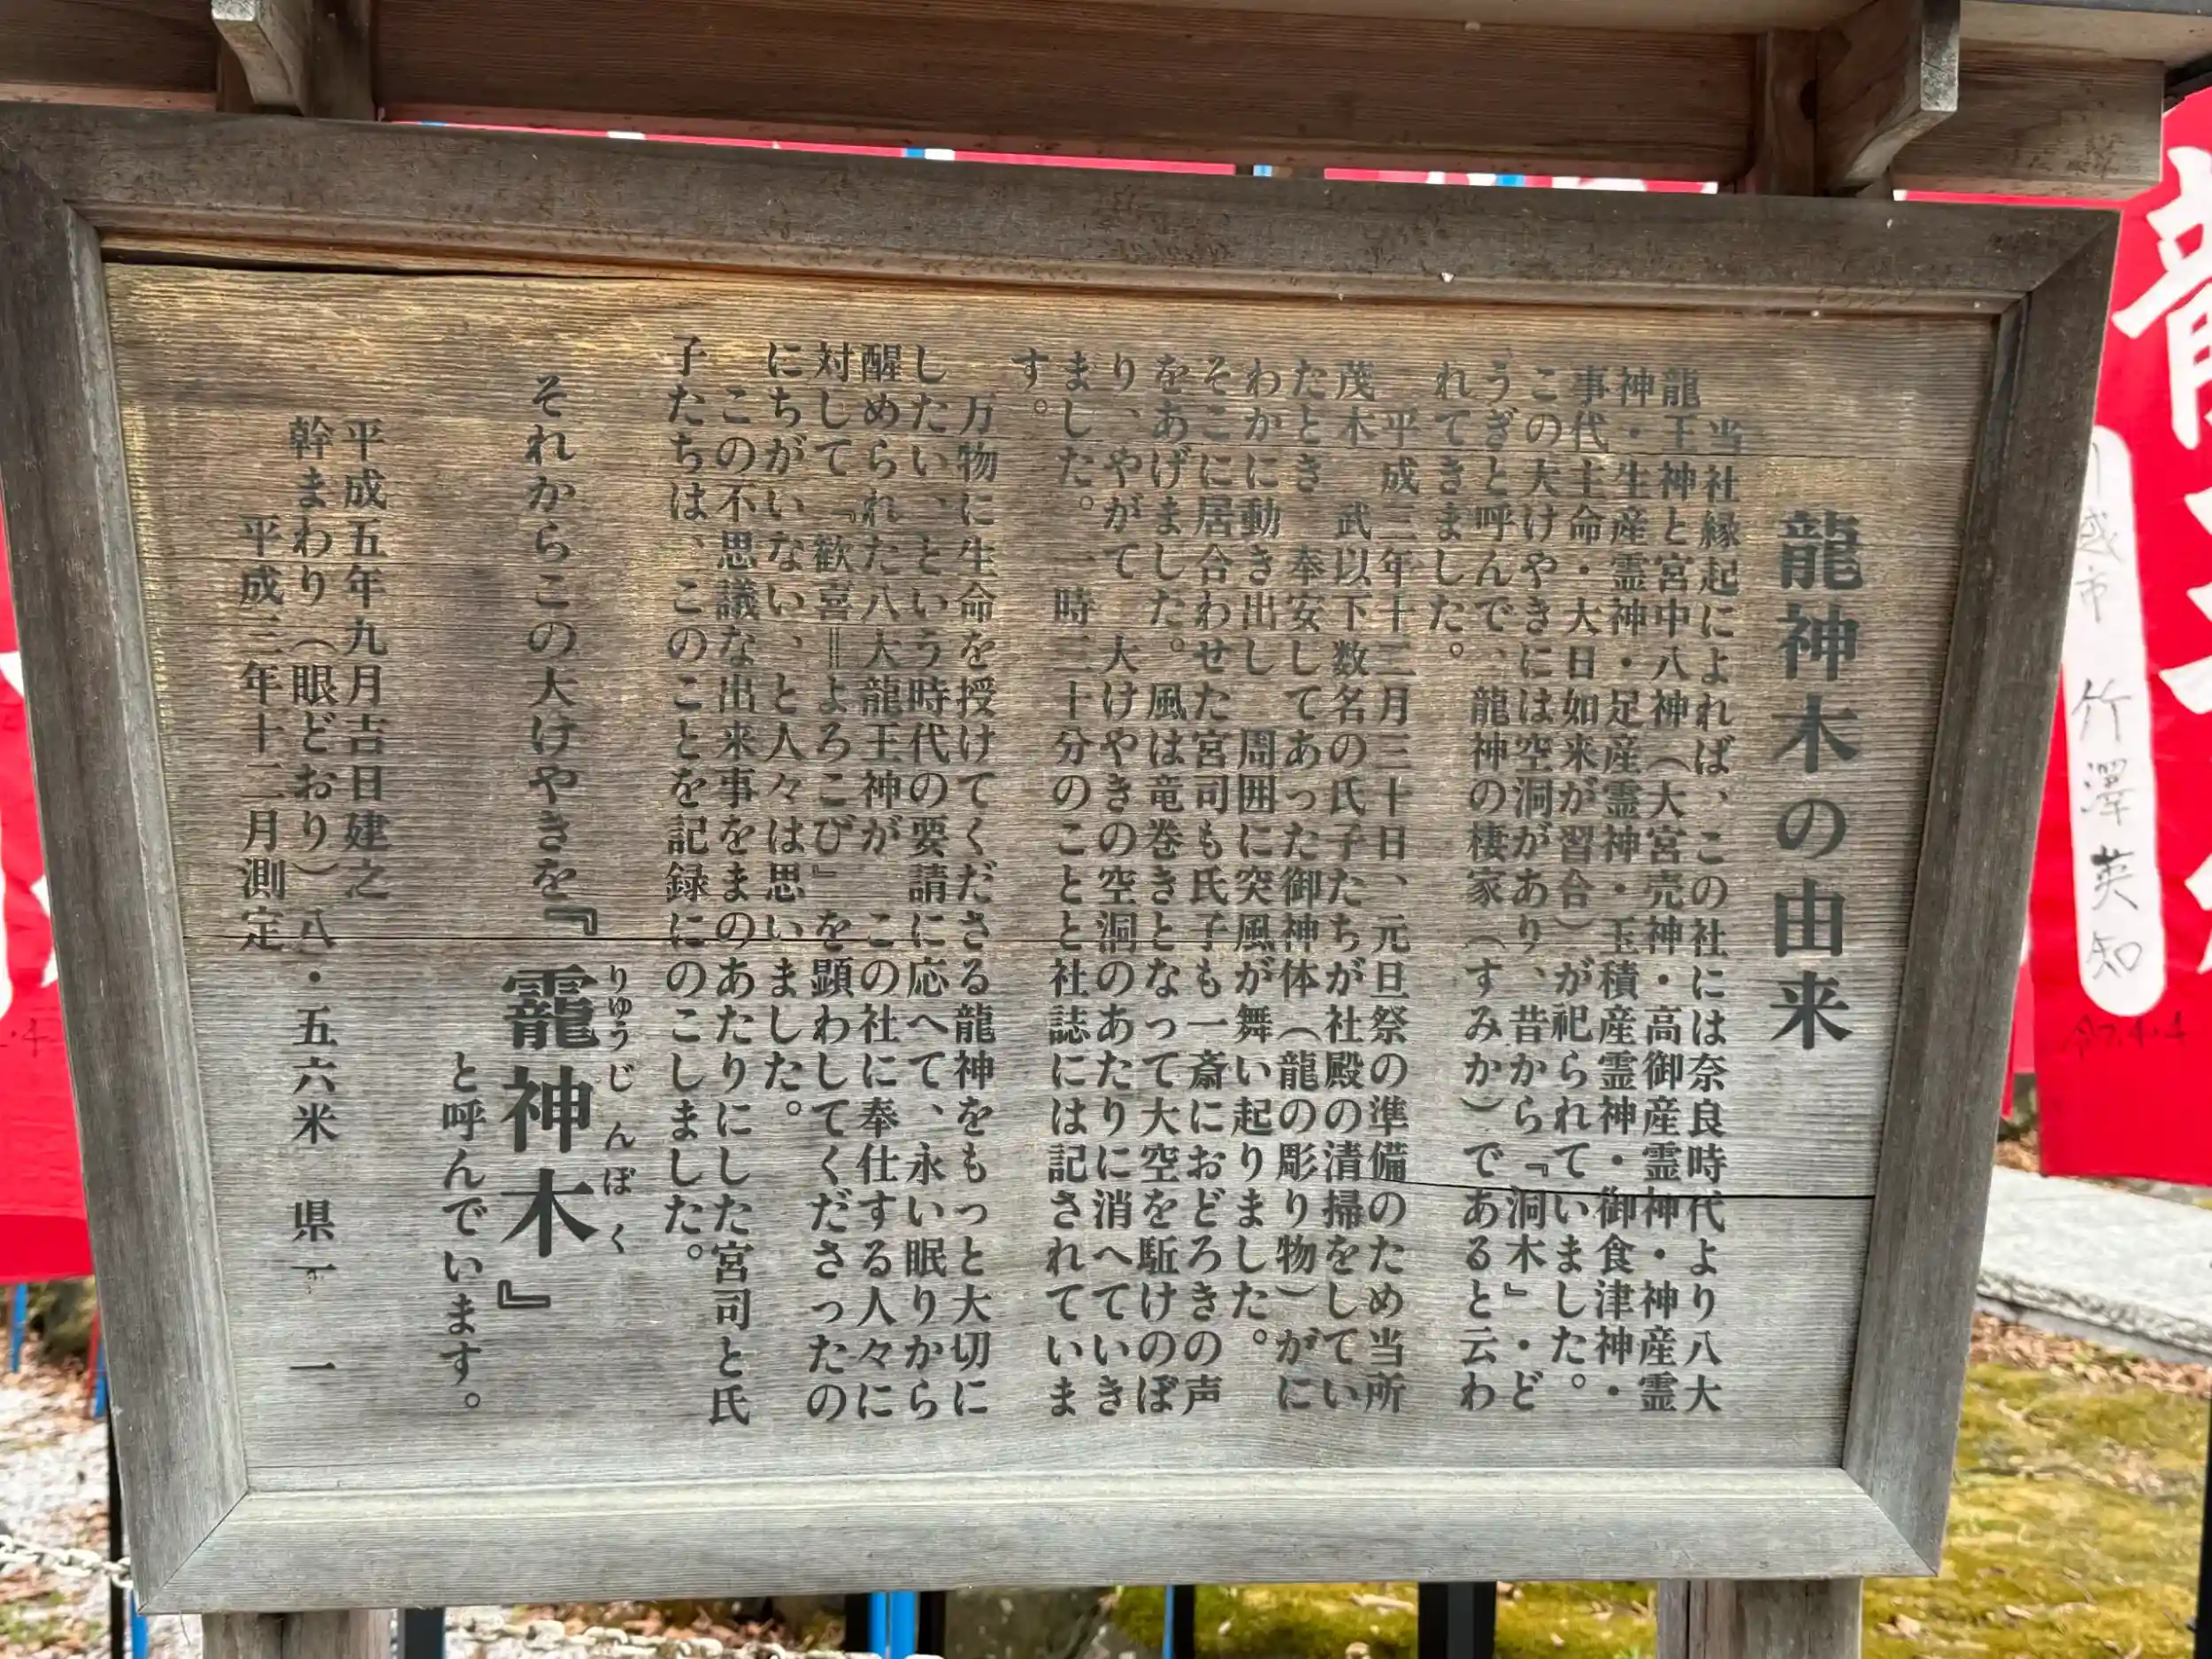 龍神木の由来
当社縁起によれば、この社には奈良時代より八大
龍王神と宮中八神（大宮売神・高御産霊神・神産霊
神・生産霊神・足産霊神・玉積産霊神・御食津神・
事代主命・大日如来が習合）が祀られていました。
この大けやきには空洞があり、昔から『洞木』・ど
うぎと呼んで、龍神の棲家（すみか）であると云わ
れてきました。
平成二年十二月三十日、元旦祭の準備のため当所
茂木　武以下数名の氏子たちが社殿の清掃をしてい
たとき　奉安してあった御神体（龍の彫り物）がに
わかに動き出し　周囲に突風が舞い起りました。
そこに居合わせた宮司も氏子も一斎におどろきの声
をあげました。風は竜巻きとなって大空を駈けのぼ
り、やがて　大けやきの空洞のあたりに消へていき
ました。　一時二十分のことと社誌には記されていま
す。
万物に生命を授けてくださる龍神をもっと大切に
したい、という時代の要請に応へて、永い眠りから
醒められた八大龍王神が　この社に奉仕する人々に
対して『歓喜＝よろこび』を顕わしてくださったの
にちがいない、と人々は思いました。
この不思議な出来事をまのあたりにした宮司と氏
子たちは、このことを記録にのこしました。
それからこの大けやきを『龗神木』
りゅうじんぼく
と呼んでいます。
平成五年九月吉日建之
幹まわり（眼どおり）八・五六米　県一　一
平成三年十二月測定
龍
市 竹澤英知